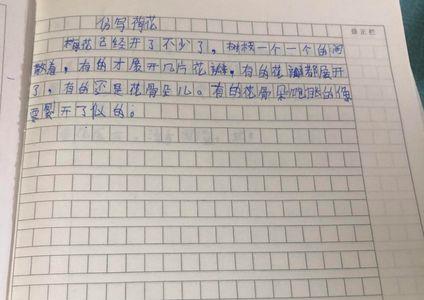 仿写梅花
梅花已经开了不少了,树枝一个一个的
散着,有的才展开几片花瓣,有的花瓣都展开
了,有的还是花骨朵儿。有的花骨朵饱胀的像
要裂开了似的。